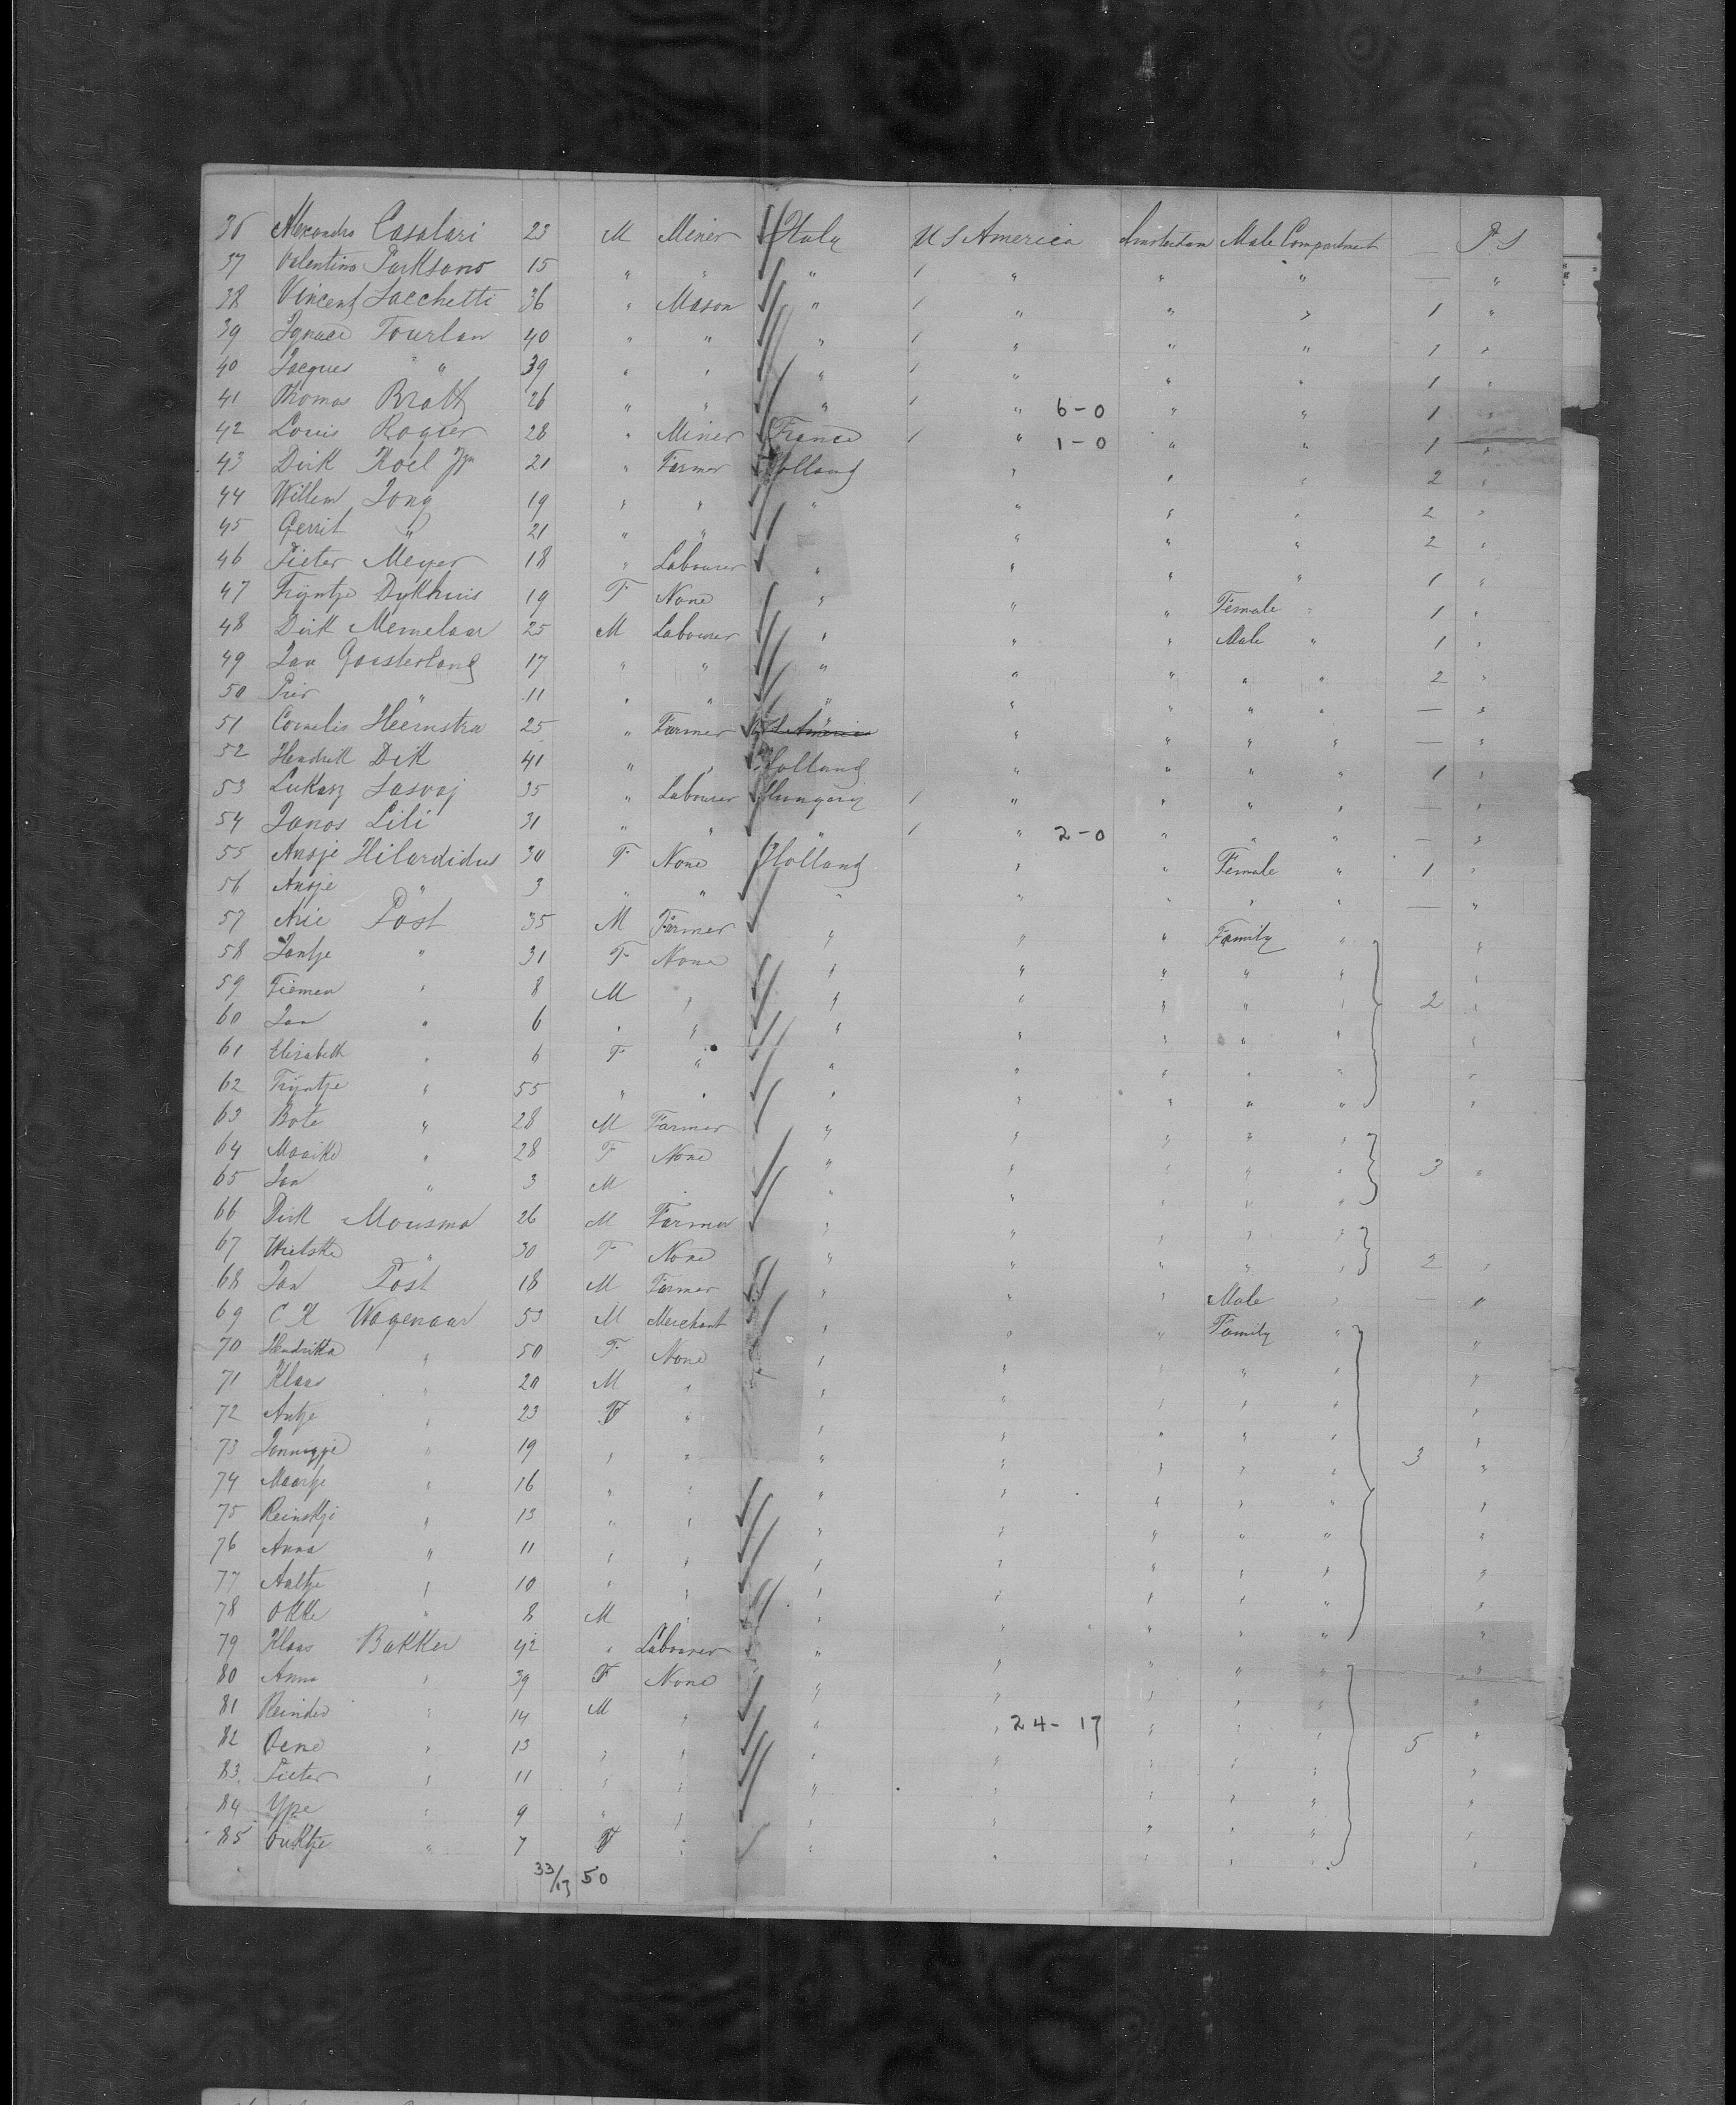 36 Alexandro Casalari 23 M Miner Italy U S America Amsterdam Male Compartment — P. S
37 Valentino Parksano 15 " " " / " " " — "
38 Vincent Sacchetti 36 " Mason " / " " " 1 "
39 Ignace Tourlan 40 " " " / " " " 1 "
40 Jacques " 39 " " " / " " " 1 "
41 Thomas Bratt 26 " " " / " 6-0 " " 1 "
42 Louis Rogier 28 " Miner France / " 1-0 " " 1 "
43 Dirk Koel 21 " Farmer Holland " " " 2 "
44 Willem Jong 19 " " " " " " 2 "
45 Gerrit " 21 " " " " " " 2 "
46 Pieter Meyer 18 " Labourer " " " " 1 "
47 Trijntje Dykhuis 19 F None " " " Female " 1 "
48 Dirk Memelaar 25 M Labourer " " " Male " 1 "
49 Jan Gaasterland 17 " " " " " " " 2 "
50 Pier " 11 " " " " " " " — "
51 Cornelis Heemstra 25 " Farmer U S America " " " " — "
52 Hendrik Dik 41 " " Holland " " " " 1 "
53 Lukasz Sasvaj 35 " Labourer Hungary / " " " " — "
54 Janos Lili 31 " " " / " 2-0 " " " — "
55 Ansje Hilardidus 30 F None Holland " " Female " 1 "
56 Ansje " 3 " " " " " " " — "
57 Arie Post 35 M Farmer " " " Family " "
58 Jantje " 31 F None " " " " " "
59 Tiemen " 8 M " " " " " " 2 "
60 Jan " 6 " " " " " " " "
61 Elizabeth " 6 F " " " " " " "
62 Trijntje " 55 " " " " " " " "
63 Bote " 28 M Farmer " " " " "
64 Maaike " 28 F None " " " " " 3 "
65 Jan " 3 M " " " " " "
66 Dirk Mousma 26 M Farmer " " " " "
67 Wietske " 30 F None " " " " " 2 "
68 Jan Post 18 M Farmer " " " Male " — "
69 C K Wagenaar 53 M Merchant " " " Family "
70 Hendrika " 50 F None " " " " "
71 Klaas " 20 M " " " " " " "
72 Antje " 23 F " " " " " " "
73 Jannigje " 19 " " " " " " " 3 "
74 Maartje " 16 " " " " " " " "
75 Reinskji " 13 " " " " " " " "
76 Anna " 11 " " " " " " " "
77 Aaltje " 10 " " " " " " " "
78 Okke " 8 M " " " " " " "
79 Klaas Bakker 42 " Labourer " " " " " "
80 Anna " 39 F None " " " " " "
81 Reinder " 14 M " " " 24-17 " " " "
82 Oene " 13 " " " " " " " 5 "
83 Pieter " 11 " " " " " " " "
84 Ype " 9 " " " " " " " "
85 Ouktje " 7 F " " " " " " "
33/17 50